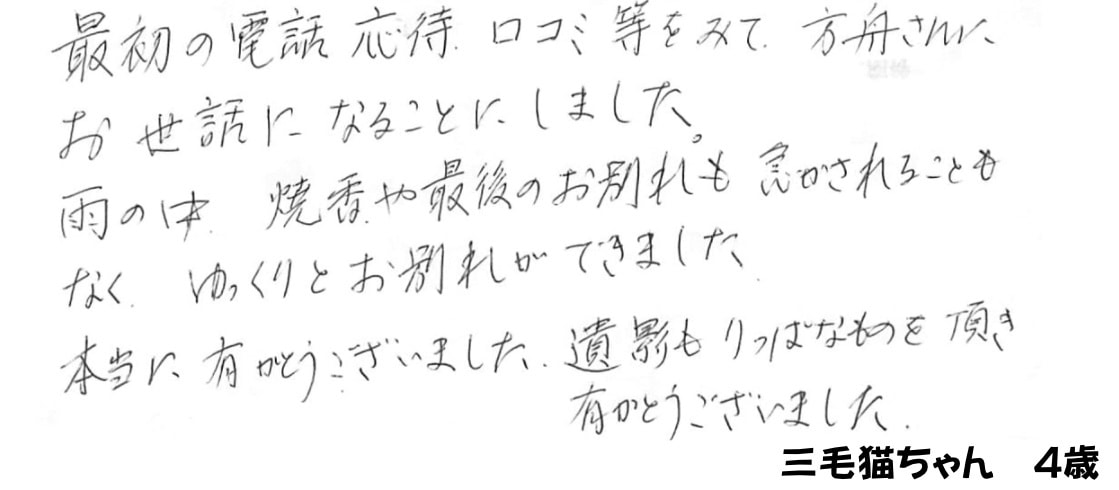 最初の電話応待、口コミ等をみて、方舟さんに、
お世話になることにしました。
雨の中、焼香や最後のお別れも急かされることも
なく、ゆっくりとお別れができました、
本当に有がとうございました、遺影もりっぱなものを頂き
有がとうございました、
三毛猫ちゃん　4歳